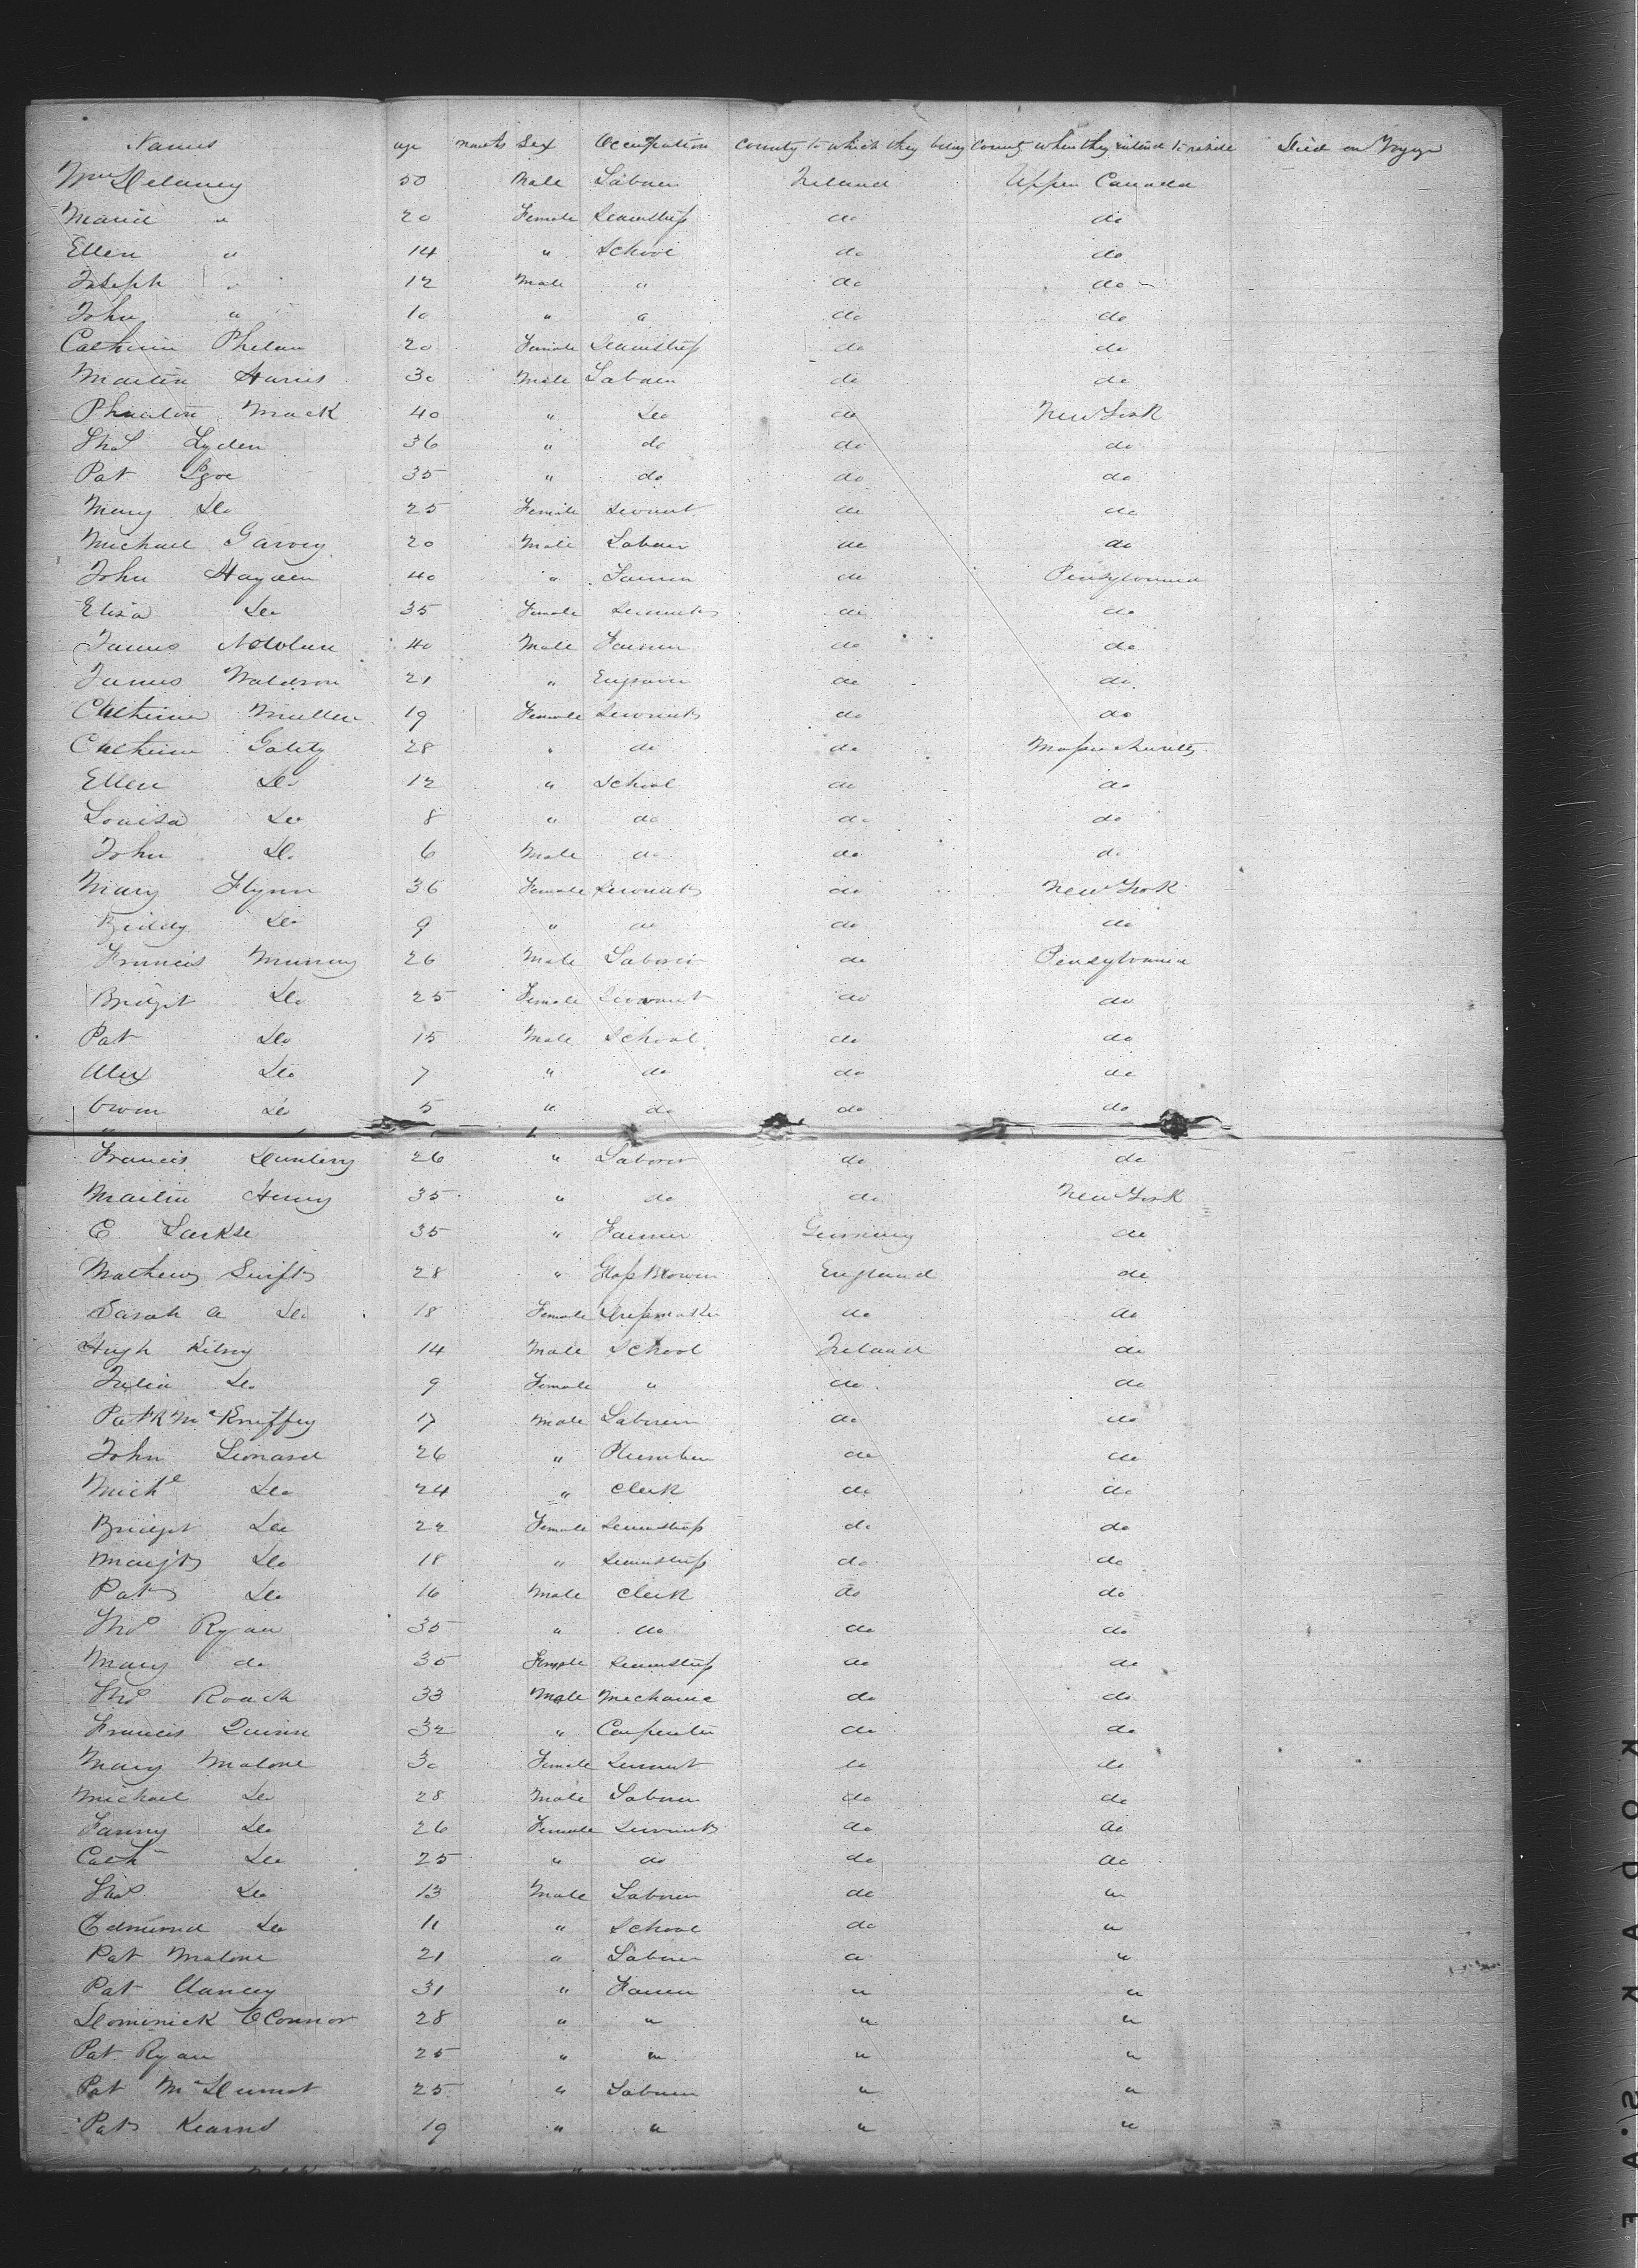 Names age months Sex Occupation County to which they belong County where they intend to reside Died on Voyge
Wm Delaney 50 Male Laborer Ireland Upper Canada
Maria " 20 Female Seamstress do do
Ellen " 14 " School do do
Joseph " 12 Male " do do
John " 10 " " do do
Catherine Phelan 20 Female Seamstress do do
Martin Harris 30 Male Laborer do do
Mack 40 " Do do New York
Thos Lyden 36 " do do do
Pat Egoe 35 " do do do
Mary Do 25 Female Servant do do
Michael Garvey 20 Male Laborer do do
John Hayden 40 " Farmer do Pensylvania
Eliza Do 35 Female Servant do do
James 40 Male Farmer do do
James Waldron 21 " Engraver do do
Catherine Mullen 19 Female Servant do do
Catherine 28 " do do Massachusetts
Ellen Do 12 " School do do
Louisa Do 8 " do do do
John Do 6 Male do do do
Mary Flynn 36 Female Servant do New York
Biddy Do 9 " do do do
Francis Murray 26 Male Laborer do Pensylvania
Bridget Do 25 Female Servant do do
Pat Do 15 Male School do do
Alex Do 7 " do do do
Owen Do 5 " do do do
Francis 26 " Laborer do do
Martin Henry 35 " do do New York
C 35 " Farmer Germany do
Mathew Swift 28 " Glass Blower England do
Sarah A Do 18 Female Dressmaker do do
Hugh 14 Male School Ireland do
Julia Do 9 Female " do do
Patk 17 Male Laborer do do
John Leonard 26 " Plumber do do
Michl Do 24 " Clerk do do
Bridget Do 22 Female Seamstress do do
Margt Do 18 " Seamstress do do
Pat Do 16 Male Clerk do do
Thos Ryan 35 " do do do
Mary do 35 Female Seamstress do do
Thos Roach 33 Male Mechanic do do
Francis Quinn 32 " Carpenter do do
Mary Malone 30 Female Servant do do
Michael Do 28 Male Laborer do do
Fanny Do 26 Female Servant do do
Cath Do 25 " do do do
Thos Do 13 Male Laborer do "
Edmund Do 11 " School do "
Pat Malone 21 " Laborer " "
Pat Clancey 31 " Farmer " "
Dominick OConnor 28 " " " "
Pat Ryan 25 " " " "
Pat McDermot 25 " Laborer " "
Pat Kearns 19 " " " "
KODAK